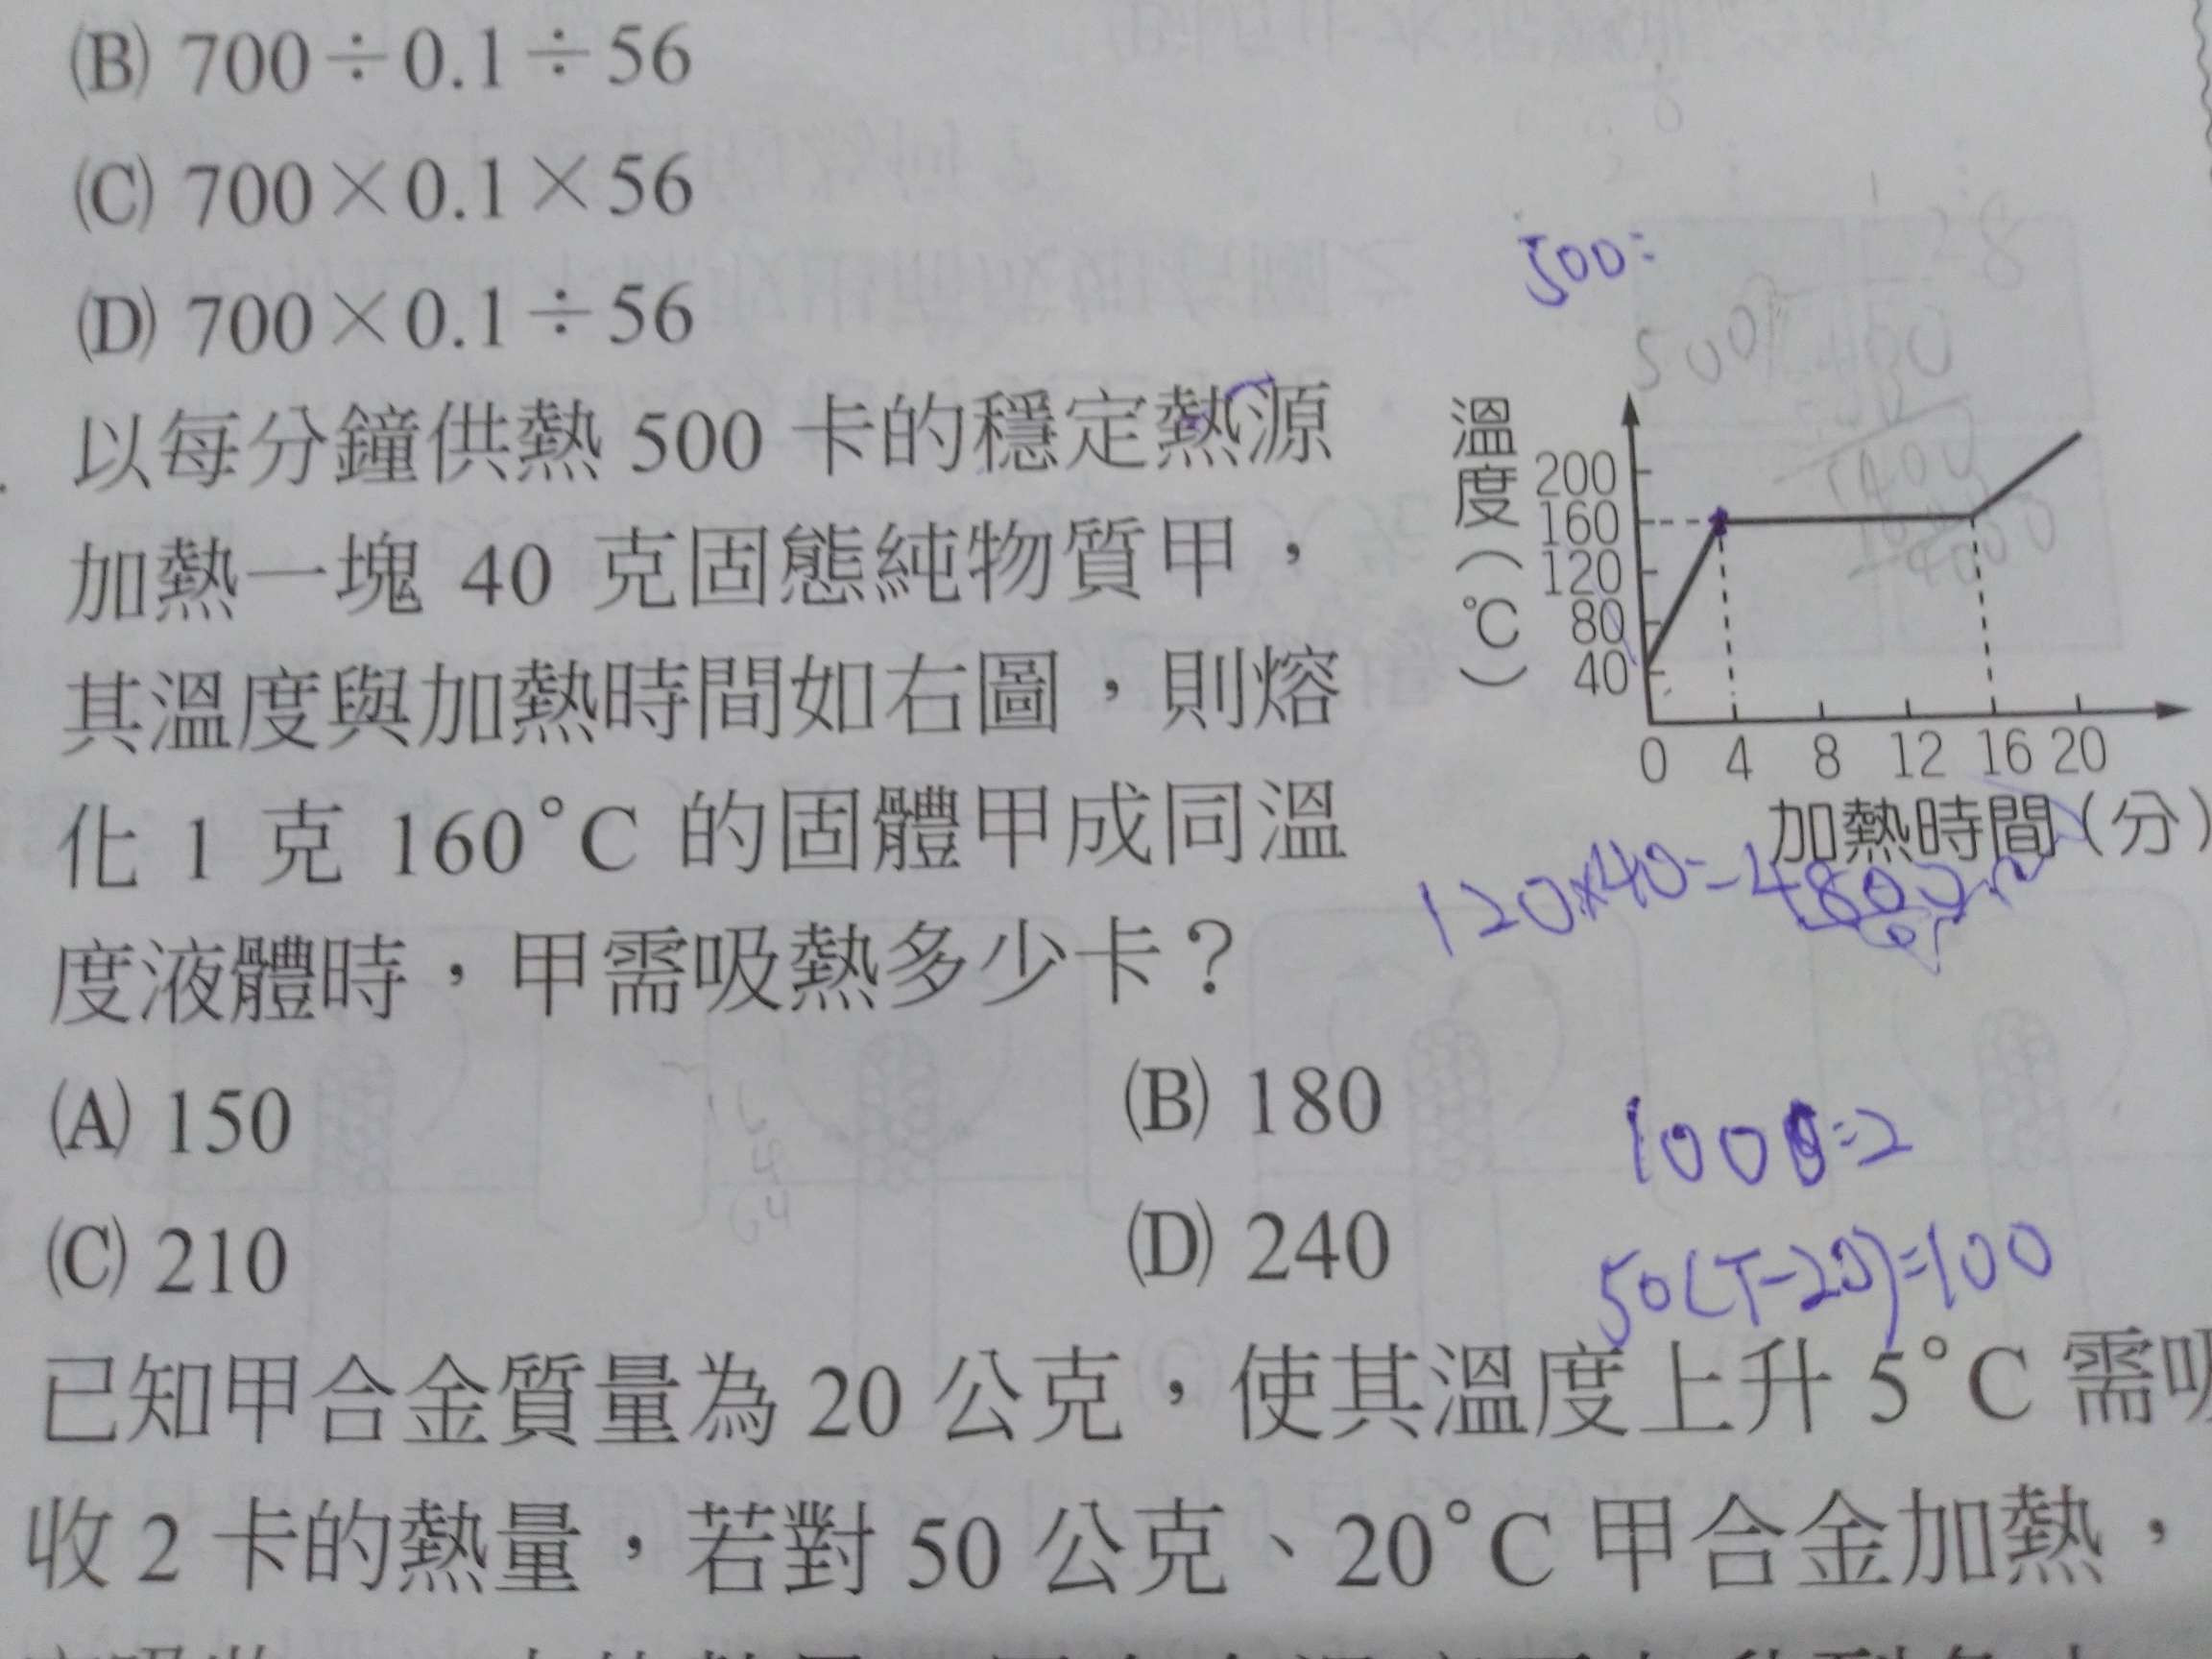 (B) 700÷0.1÷56
(C) 700×0.1×56
(D) 700×0.1÷56
500=
以每分鐘供熱 500 卡的穩定熱源
加熱一塊 40 克固態純物質甲，
其溫度與加熱時間如右圖，則熔
化 1 克 160°C 的固體甲成同溫
度液體時，甲需吸熱多少卡？
溫度(℃)
200
160
120
80
40
0 4 8 12 16 20
加熱時間(分)
120×40=4800
(A) 150
(B) 180
(C) 210
(D) 240
=2
50(T-20)=100
已知甲合金質量為 20 公克，使其溫度上升 5°C 需吸
收 2 卡的熱量，若對 50 公克、20°C 甲合金加熱，